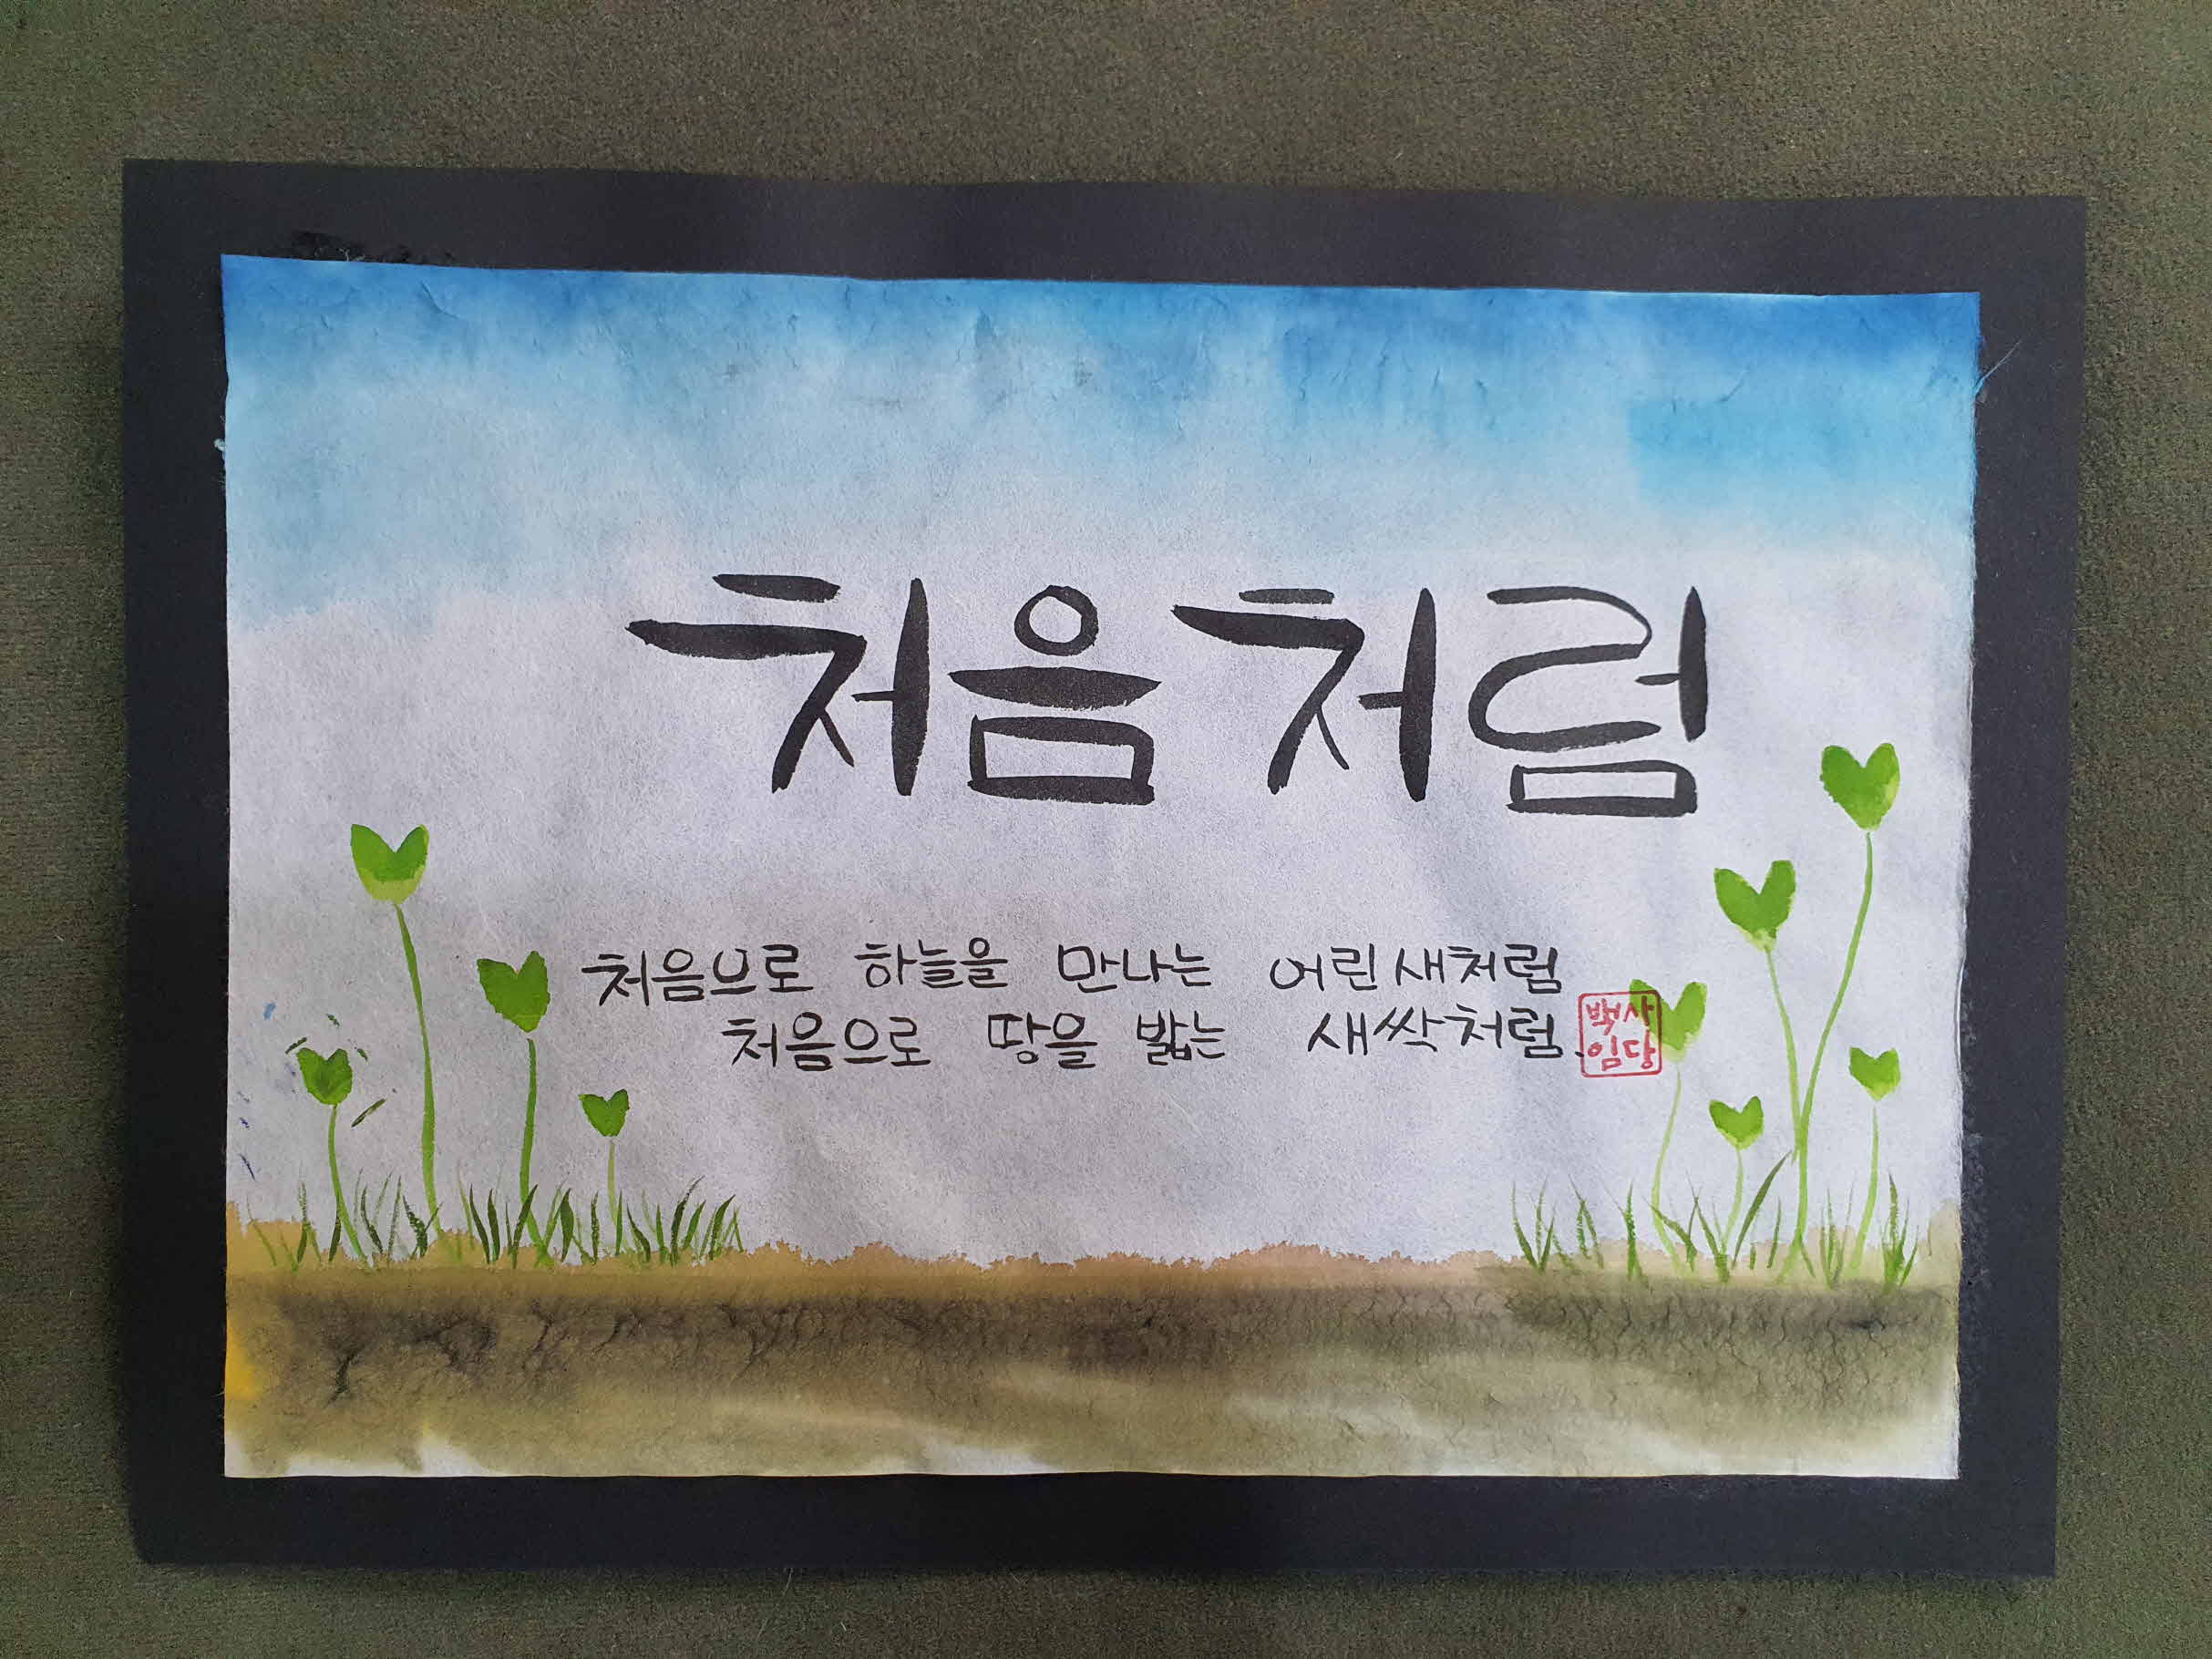 처음처럼
처음브로 하늘을 만나는 어린새처럼
처음으로 땅을 밟는 새싹처럼.
백사
임당